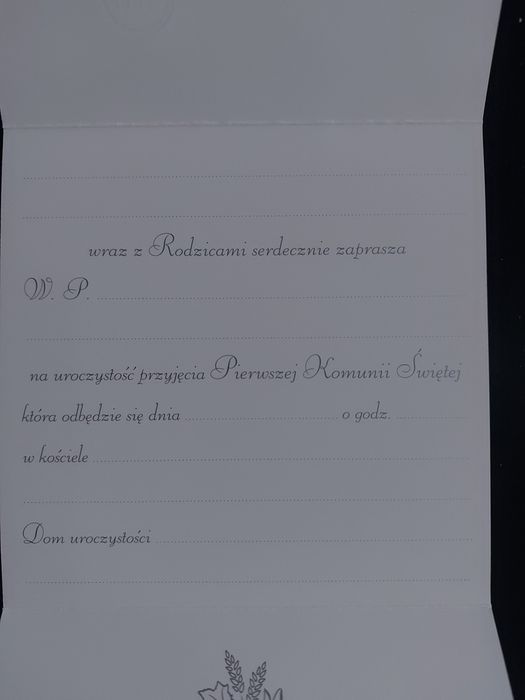 wraz z Rodzicami serdecznie zaprasza
W. P.
na uroczystość przyjęcia Pierwszej Komunii Świętej
która odbędzie się dnia o godz.
w kościele
Dom uroczystości